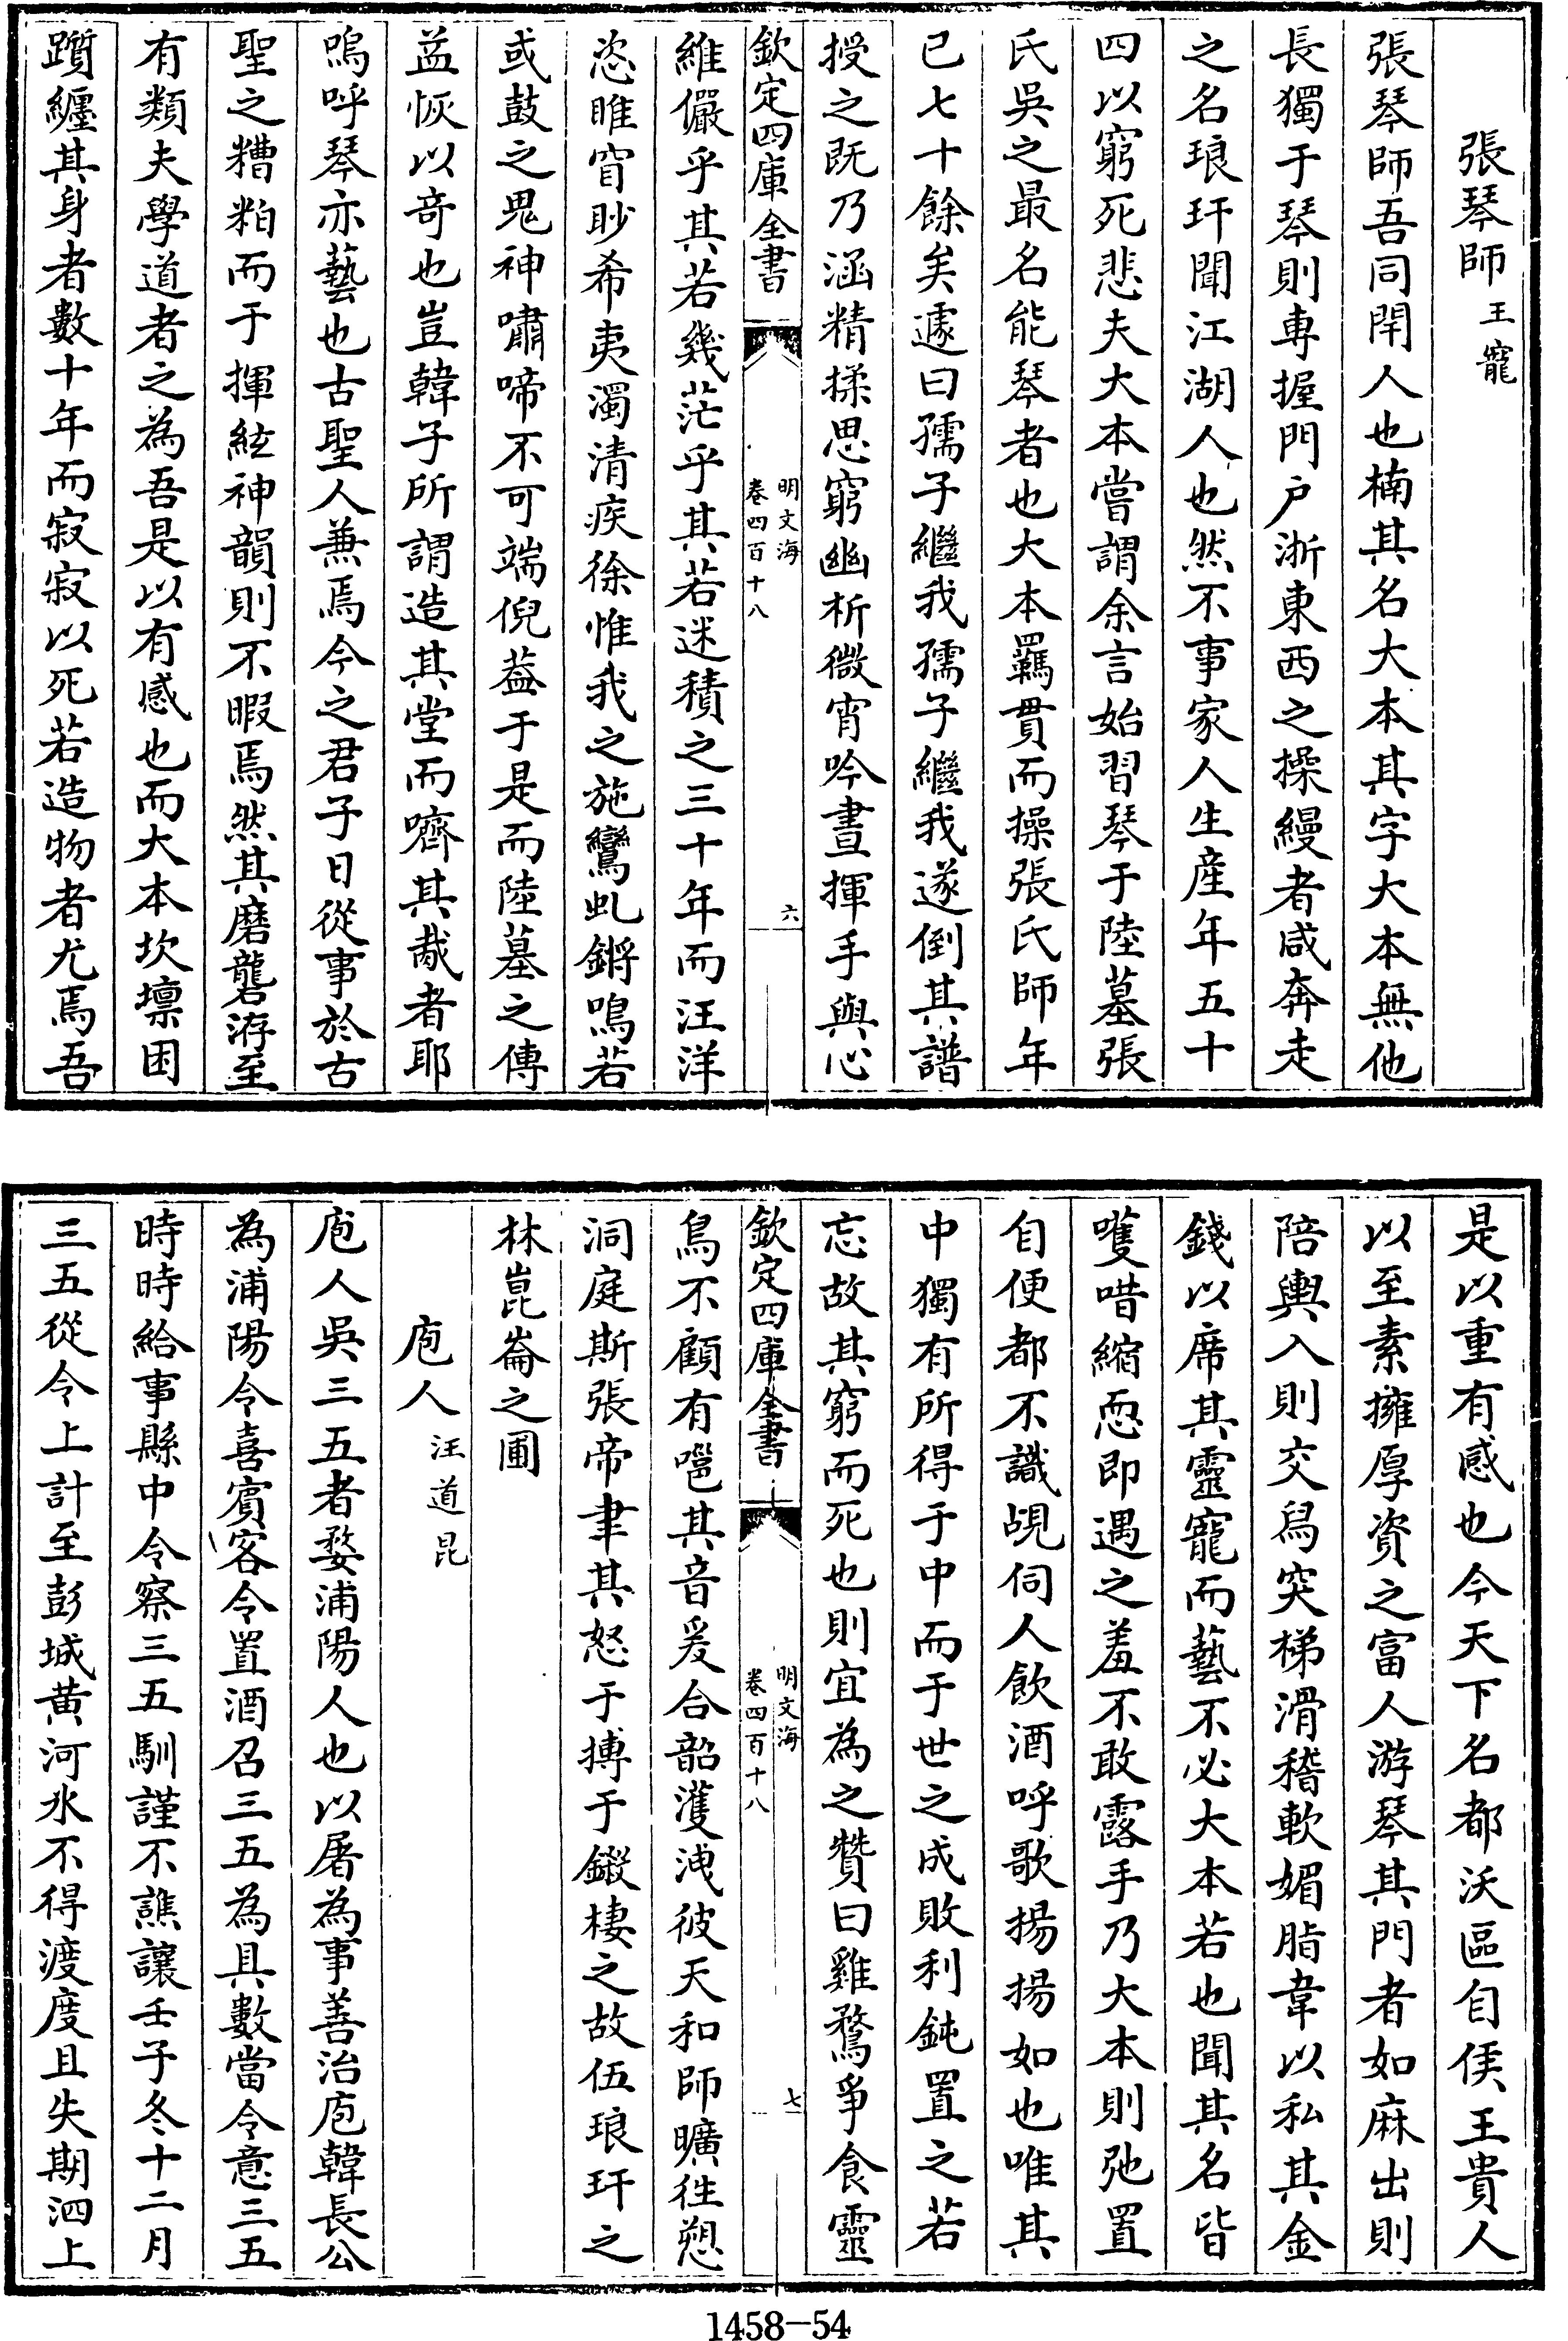 張琴師王寵
張琴師吾同閈人也楠其名大本其字大本無他
長獨于琴則専握門户浙東西之操縵者咸奔走
之名琅玕聞江湖人也然不事家人生産年五十
四以窮死悲夫大本嘗謂余言始習琴于陸墓張
氏吳之最名能琴者也大本羈貫而操張氏師年
已七十餘矣遽曰孺子繼我孺子繼我遂倒其譜
授之既乃涵精揉思窮幽析微宵吟晝揮手與心
欽定四庫全書
明文海
卷四百十八
六
維儼乎其若幾茫乎其若迷積之三十年而汪洋
恣睢窅眇希夷濁清疾徐惟我之施鸞虬鏘鳴若
或鼓之鬼神嘯啼不可端倪葢于是而陸墓之傳
益恢以竒也豈韓子所謂造其堂而嚌其胾者耶
嗚呼琴亦藝也古聖人兼焉今之君子日從事於古
聖之糟粕而于揮絃神韻則不暇焉然其磨礱洊至
有類夫學道者之為吾是以有感也而大本坎壈困
躓纏其身者數十年而寂寂以死若造物者尤焉吾
是以重有感也今天下名都沃區自侯王貴人
以至素擁厚資之富人游琴其門者如麻出則
陪輿入則交舄突梯滑稽軟媚脂韋以私其金
錢以席其靈寵而藝不必大本若也聞其名皆
嚄唶縮恧即遇之羞不敢露手乃大本則弛置
自便都不識覘伺人飲酒呼歌揚揚如也唯其
中獨有所得于中而于世之成敗利鈍置之若
忘故其窮而死也則宜為之贊曰雞鶩爭食靈
欽定四庫全書
明文海
卷四百十八
七
鳥不顧有嗈其音爰合韶濩洩彼天和師曠徃愬
洞庭斯張帝聿其怒于摶于鎩棲之故伍琅玕之
林崑崙之圃
庖人汪道昆
庖人吳三五者婺浦陽人也以屠為事善治庖韓長公
為浦陽令喜賓客令置酒召三五為具數當令意三五
時時給事縣中令察三五馴謹不譙讓壬子冬十二月
三五從令上計至彭城黄河氷不得渡度且失期泗上
1458-54